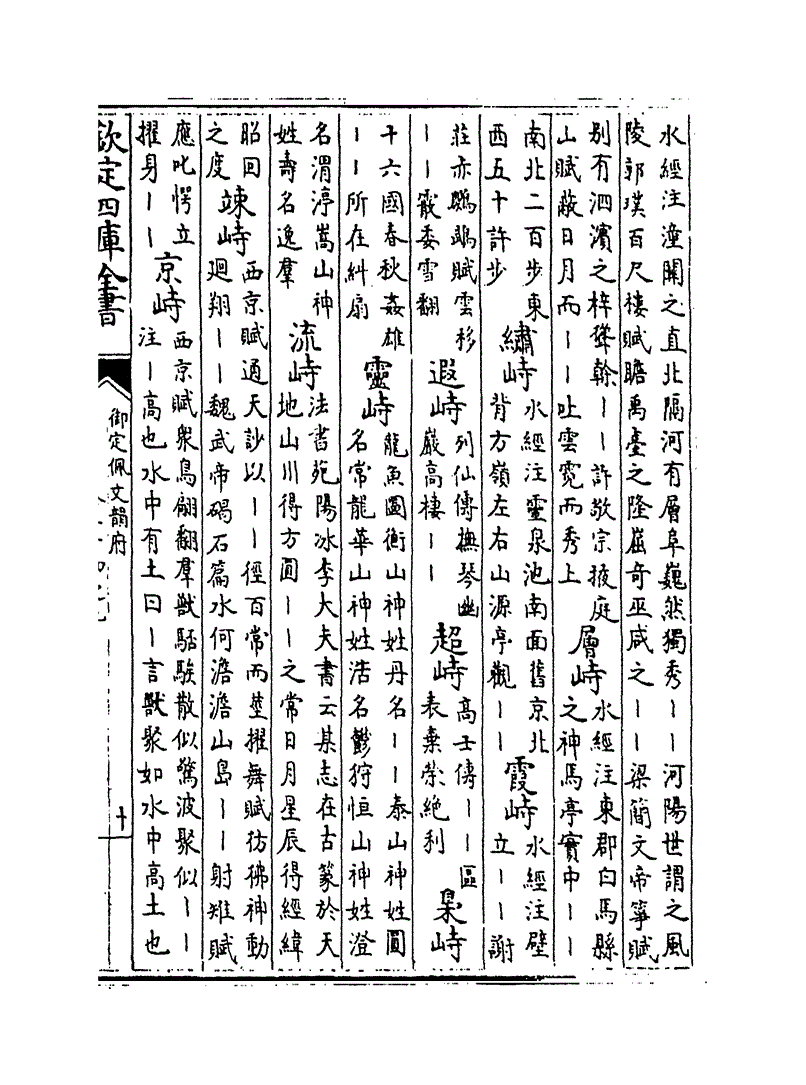 水經注潼關之直北隔河有層阜巍然獨秀丨丨河陽世謂之風
陵郭璞百尺樓賦瞻禹臺之隆崫奇巫咸之丨丨梁簡文帝箏賦
别有泗濱之梓聳幹丨丨許敬宗掖庭
山賦蔽日月而丨丨吐雲霓而秀上
層峙
水經注東郡白馬縣
之神馬亭實中丨丨
南北二百步東
西五十許步
繡峙
水經注靈泉池南面舊京北
背方嶺左右山源亭觀丨丨
霞峙
水經注壁
立丨丨謝
莊赤鸚鵡賦雲移
丨丨霰委雪翻
遐峙
列仙傳撫琴幽
巖高棲丨丨
超峙
高士傳丨丨區
表棄榮絶利
梟峙
十六國春秋姦雄
丨丨所在糾扇
靈峙
龍魚圖衡山神姓丹名丨丨泰山神姓圓
名常龍華山神姓浩名鬱狩恒山神姓澄
名渭渟嵩山神
姓壽名逸羣
流峙
法書苑陽冰李大夫書云某志在古篆於天
地山川得方圓丨丨之常日月星辰得經緯
昭回
之度
竦峙
西京賦通天訬以丨丨徑百常而莖擢舞賦彷彿神動
廻翔丨丨魏武帝碣石篇水何澹澹山島丨丨射雉賦
應叱愕立
擢身丨丨
京峙
西京賦衆鳥翩翻羣獸駓騃散似驚波聚似丨丨
注丨高也水中有土曰丨言獸聚如水中高土也
欽定四庫全書
御定佩文韻府
十